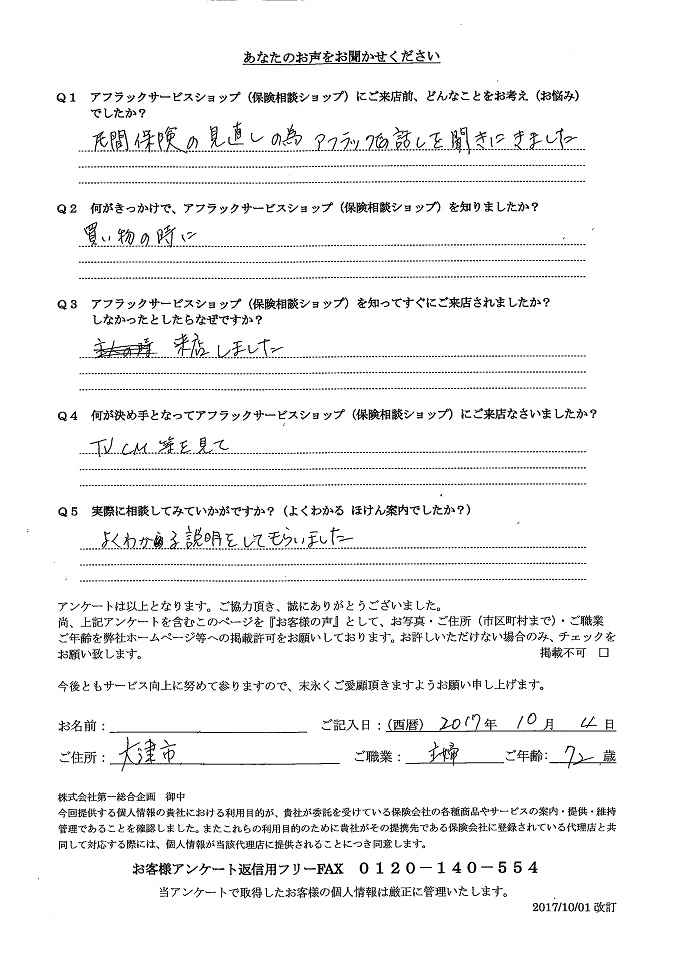 あなたのお声をお聞かせください
Q1 アフラックサービスショップ（保険相談ショップ）にご来店前、どんなことをお考え（お悩み）
でしたか？
民間保険の見直しの為 アフラックの話しを聞きにきました
Q2 何がきっかけで、アフラックサービスショップ（保険相談ショップ）を知りましたか？
買い物の時に
Q3 アフラックサービスショップ（保険相談ショップ）を知ってすぐにご来店されましたか？
しなかったとしたらなぜですか？
来店しました
Q4 何が決め手となってアフラックサービスショップ（保険相談ショップ）にご来店なさいましたか？
TV CM 等を見て
Q5 実際に相談してみていかがですか？（よくわかる ほけん案内でしたか？）
よくわかる説明をしてもらいました
アンケートは以上となります。ご協力頂き、誠にありがとうございました。
尚、上記アンケートを含むこのページを『お客様の声』として、お写真・ご住所（市区町村まで）・ご職業
ご年齢を弊社ホームページ等への掲載許可をお願いしております。お許しいただけない場合のみ、チェックを
お願い致します。 掲載不可 □
今後ともサービス向上に努めて参りますので、末永くご愛顧頂きますようお願い申し上げます。
お名前： ご記入日：（西暦） 2017年 10月 4日
ご住所： 大津市 ご職業： 主婦 ご年齢： 72 歳
株式会社第一総合企画 御中
今回提供する個人情報の貴社における利用目的が、貴社が委託を受けている保険会社の各種商品やサービスの案内・提供・維持
管理であることを確認しました。またこれらの利用目的のために貴社がその提携先である保険会社に登録されている代理店と共
同して対応する際には、個人情報が当該代理店に提供されることにつき同意します。
お客様アンケート返信用フリーFAX 0120－140－554
当アンケートで取得したお客様の個人情報は厳正に管理いたします。
2017/10/01 改訂